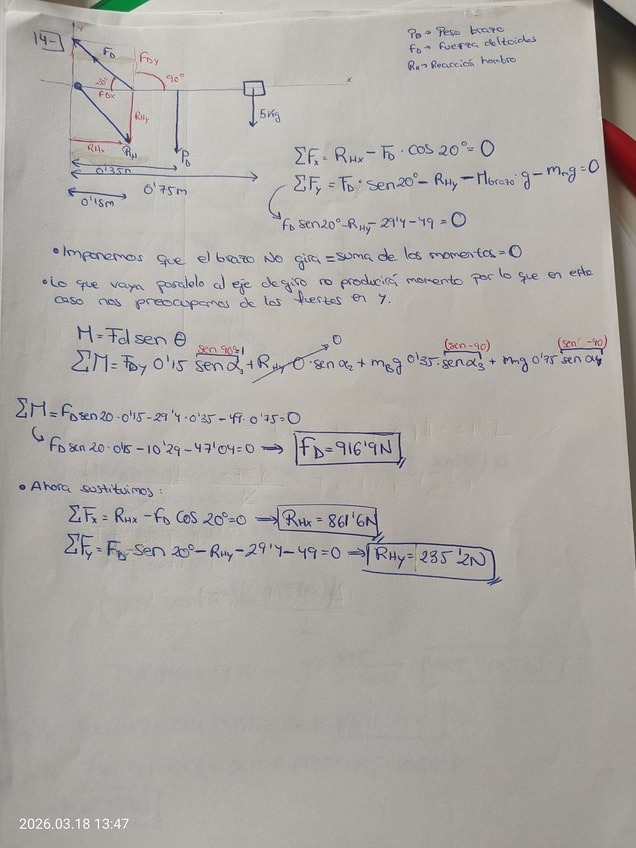 14-
y
F_D
F_Dy
20°
90°
F_Dx
x
R_Hy
5Kg
R_Hx
R_H
P_B
0'35m
0'75m
0'15m
P_B → Peso brazo
F_D → Fuerza deltoides
R_H → Reacción hombro
ΣFx = R_Hx - F_D · cos 20° = 0
ΣFy = F_D · sen20° - R_Hy - M_brazo · g - m_m g = 0
F_D sen20° - R_Hy - 29'4 - 49 = 0
• Imponemos que el brazo NO gira = suma de los momentos = 0
• Lo que vaya paralelo al eje de giro no producirá momento por lo que en este
caso nos preocupamos de las fuerzas en Y.
M = Fd sen θ
0
(sen 90°) (sen -90) (sen -90)
ΣM = F_Dy 0'15 sen α₁ + R_Hy 0 · sen α₂ + m_B g 0'35 · sen α₃ + m_m g 0'75 sen α₄
ΣM = F_D sen20 · 0'15 - 29'4 · 0'35 - 49 · 0'75 = 0
F_D sen 20 · 0'15 - 10'29 - 47'04 = 0 ⇒ F_D = 916'9N
• Ahora sustituimos:
ΣFx = R_Hx - F_D cos 20° = 0 ⇒ R_Hx = 861'6N
ΣFy = F_D · sen 20° - R_Hy - 29'4 - 49 = 0 ⇒ R_Hy = 235'2N
2026.03.18 13:47